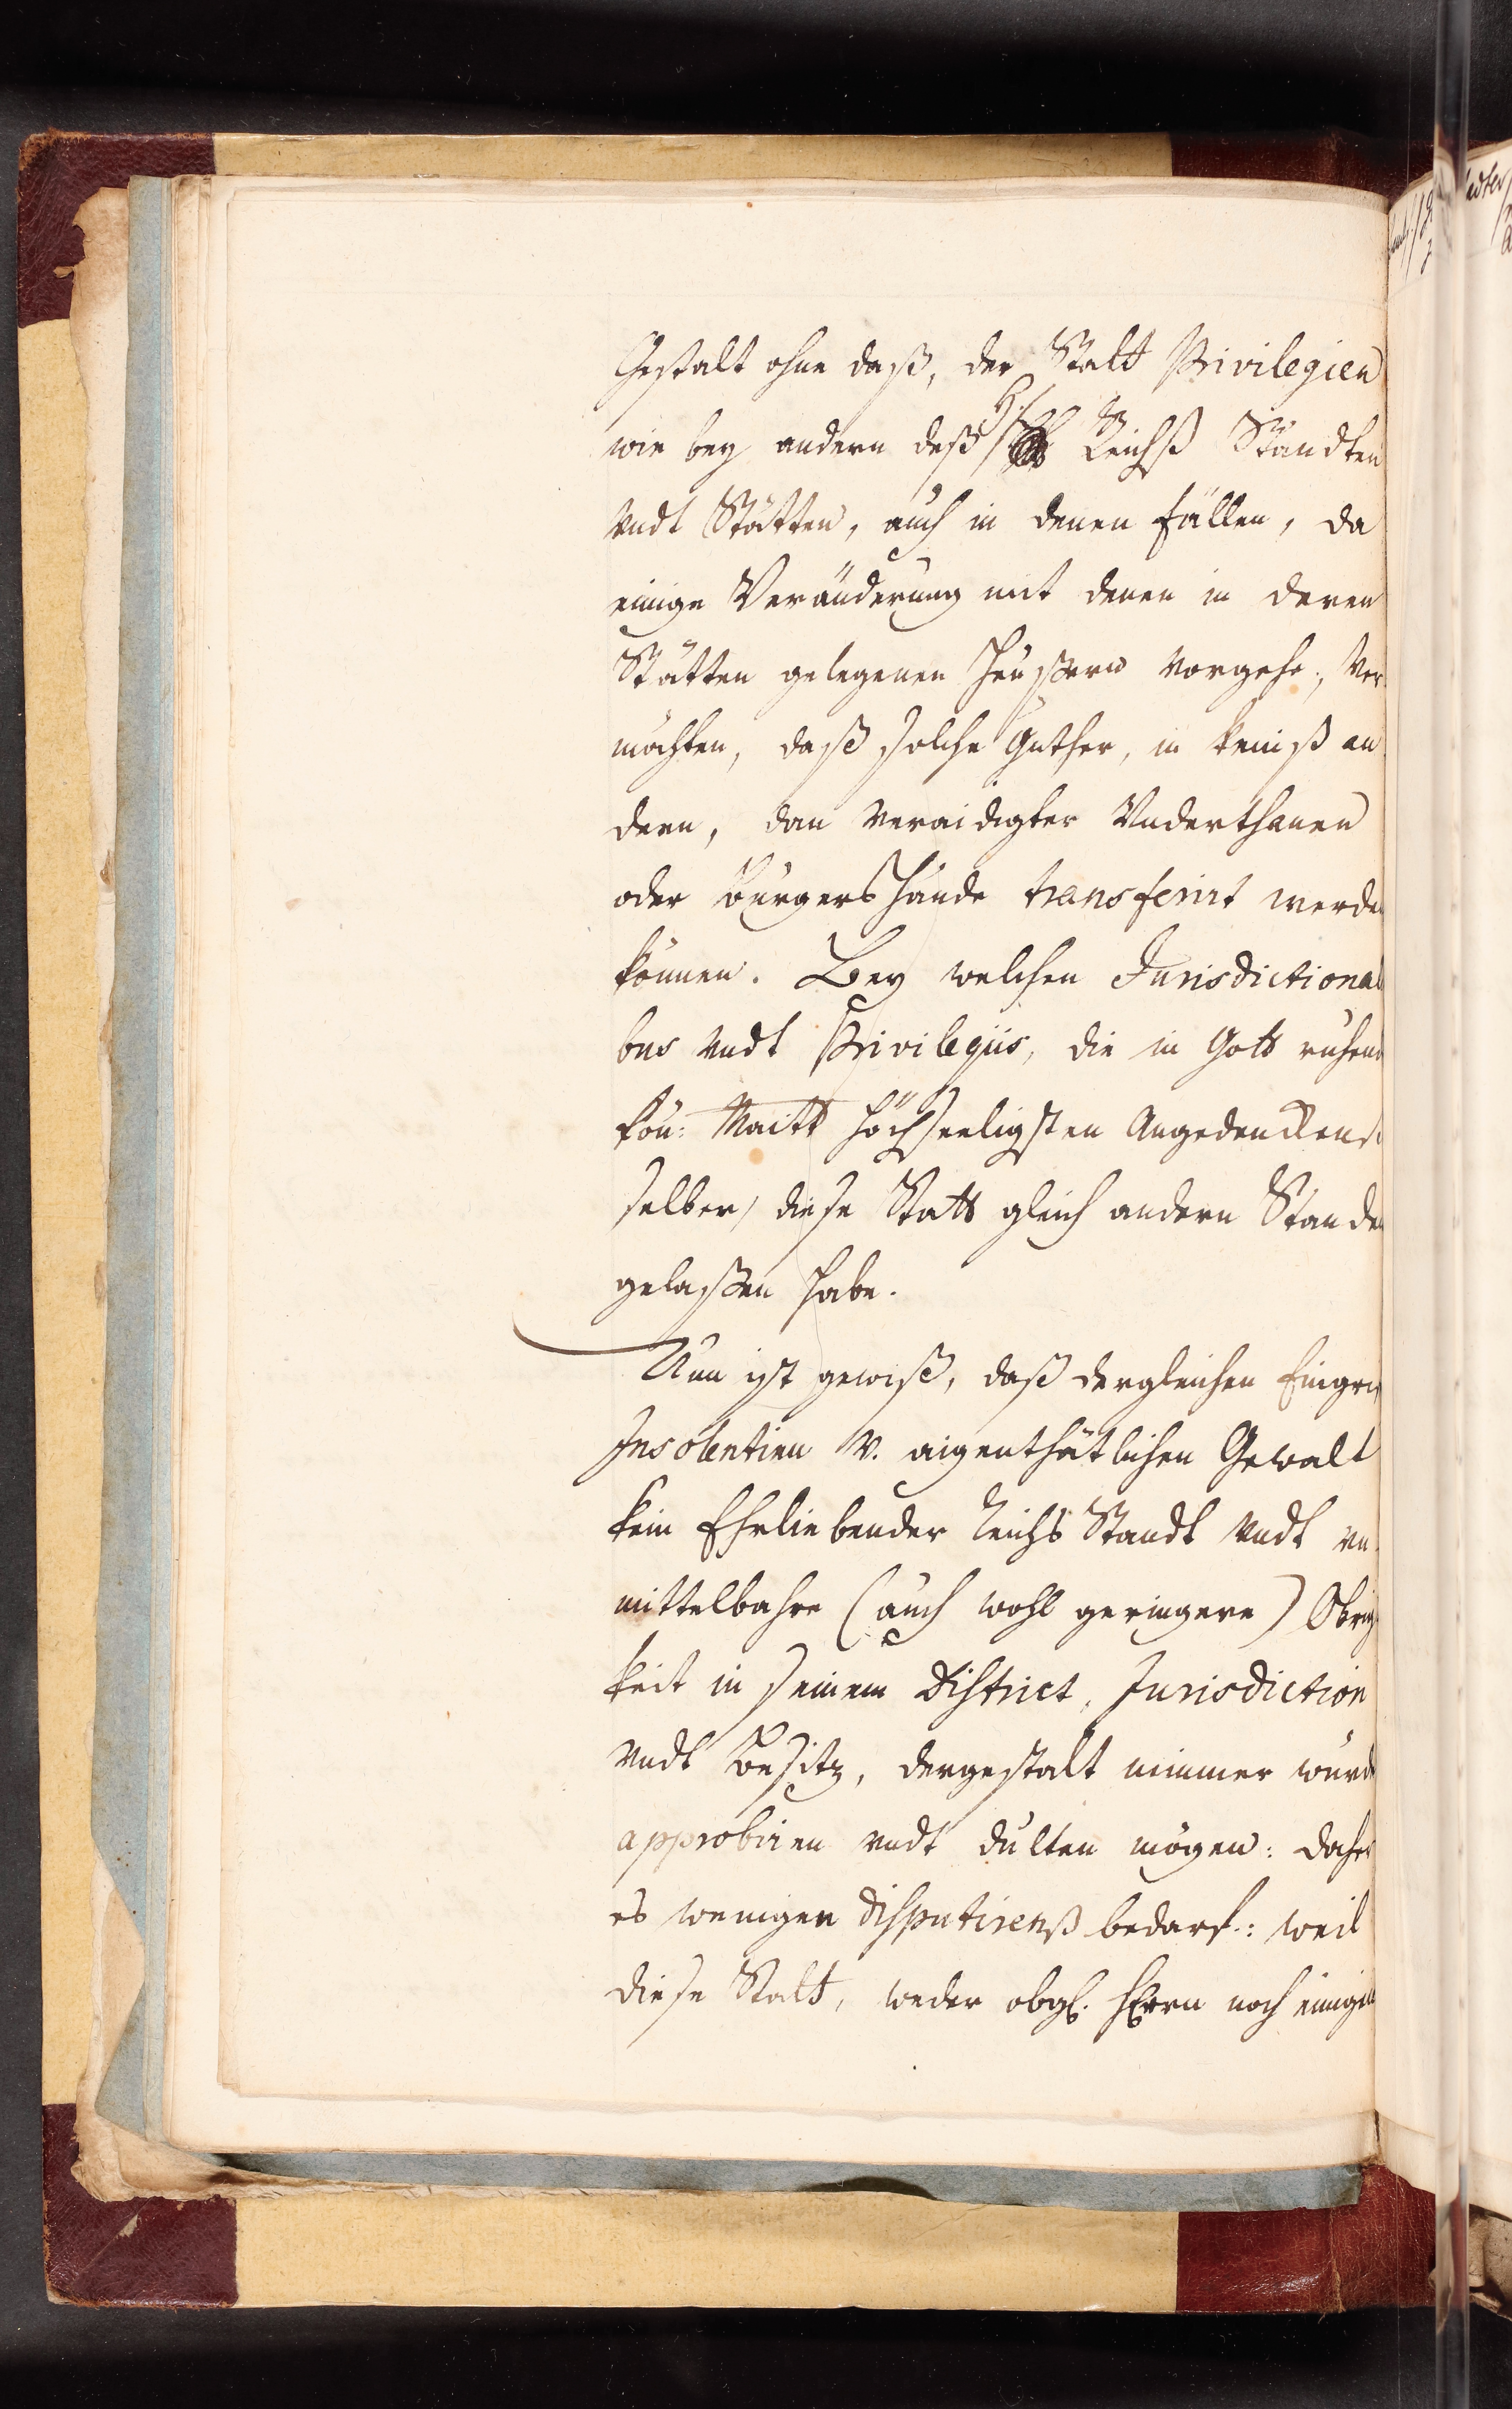 Gestalt ohne daß, der Statt Privilegien
wie bey andern deß Reichß Ständten
vndt Stätten, auch in denen fällen, da
einige Veränderung mit denen in deren
Stätten gelegenen Heußern vorgehe, ver
möchten, daß solche Güther, in keineß an
dern, dan veraidigter Vnderthanen
oder Burgers hände transferirt werden
können. Bey welchen Jurisdictional
bus vndt Privilegiis, die in Gott ruhend
kön: Maitt höchseeligsten Angedenckens
selber, diese Statt gleich andern Stände
gelaßen habe.
Nun ist gewiß, daß dergleichen Eingrif
Insolentien v. aigenthätlichen Gewalt
kein Ehrliebender Reichs Standt vndt vn
mittelbahre (auch wohl geringere) Obrig
keit in seinem District, Jurisdiction
vndt Besitz, dergestalt nimmer würde
approbiren vndt dulten mögen: daher
es weniger disputirenß bedarf: weil
diese Statt, weder obgl. Herrn noch einigen